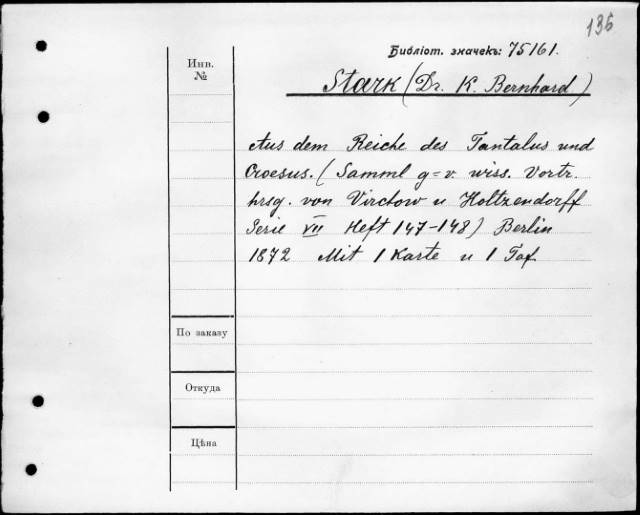 136
Библіот. значекъ: 75161.
Инв.
№
Stark (Dr. K. Bernhard)
Aus dem Reiche des Tantalus und
Croesus. (Samml g=v. wiss. Vortr.
hrsg. von Virchow u Holtzendorff
Serie VII Heft 147-148) Berlin
1872 Mit 1 Karte u 1 Taf
По заказу
Откуда
Цѣна